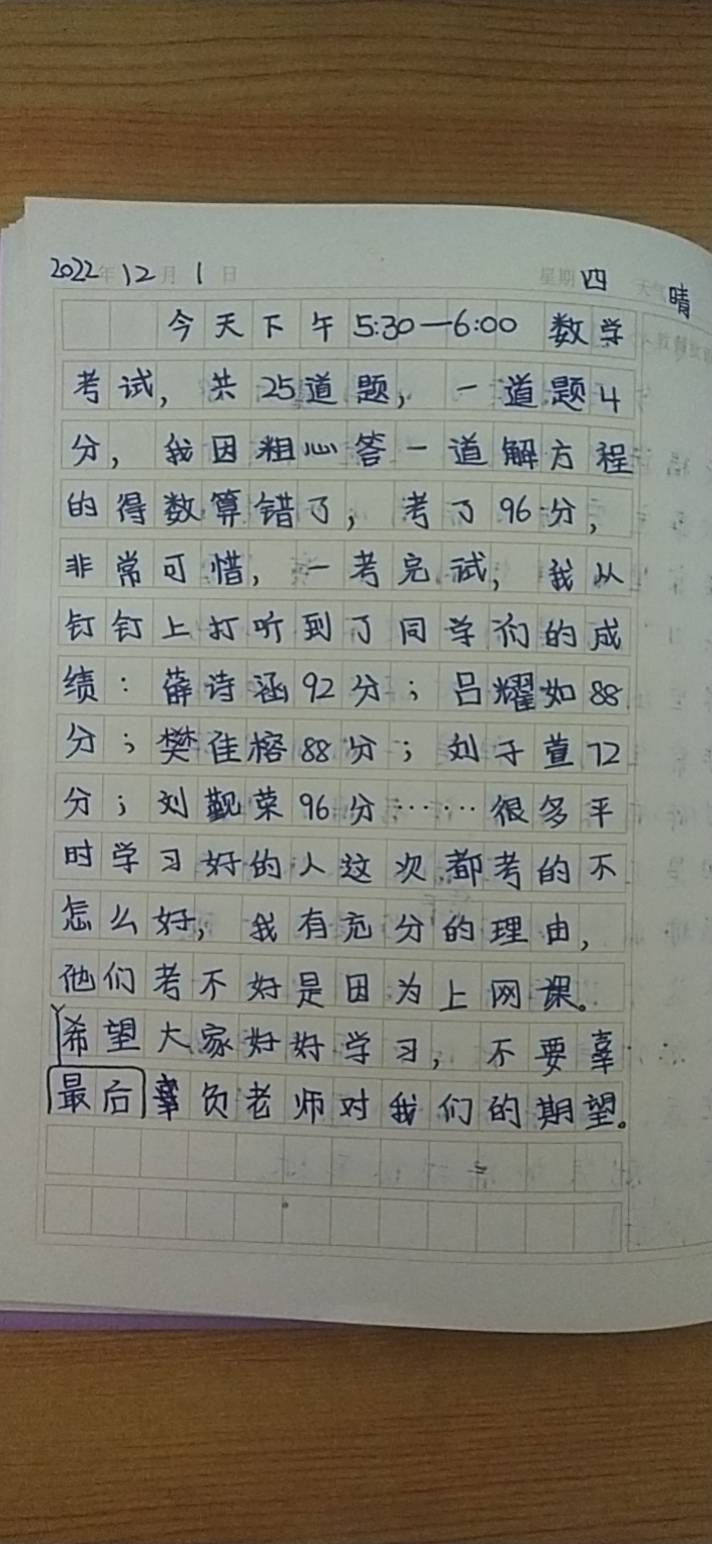 2022年12月1日 星期四 天气晴
今天下午5:30—6:00 数学
考试，共25道题，一道题4
分，我因粗心答一道解方程
的得数算错了，考了96分，
非常可惜，一考完试，我从
钉钉上打听到了同学们的成
绩：薛诗涵92分；吕耀如88
分；樊佳榕88分；刘子萱72
分；刘觐荣96分……很多平
时学习好的人这次都考的不
怎么好，我有充分的理由，
他们考不好是因为上网课。
希望大家好好学习，不要辜
最后辜负老师对我们的期望。